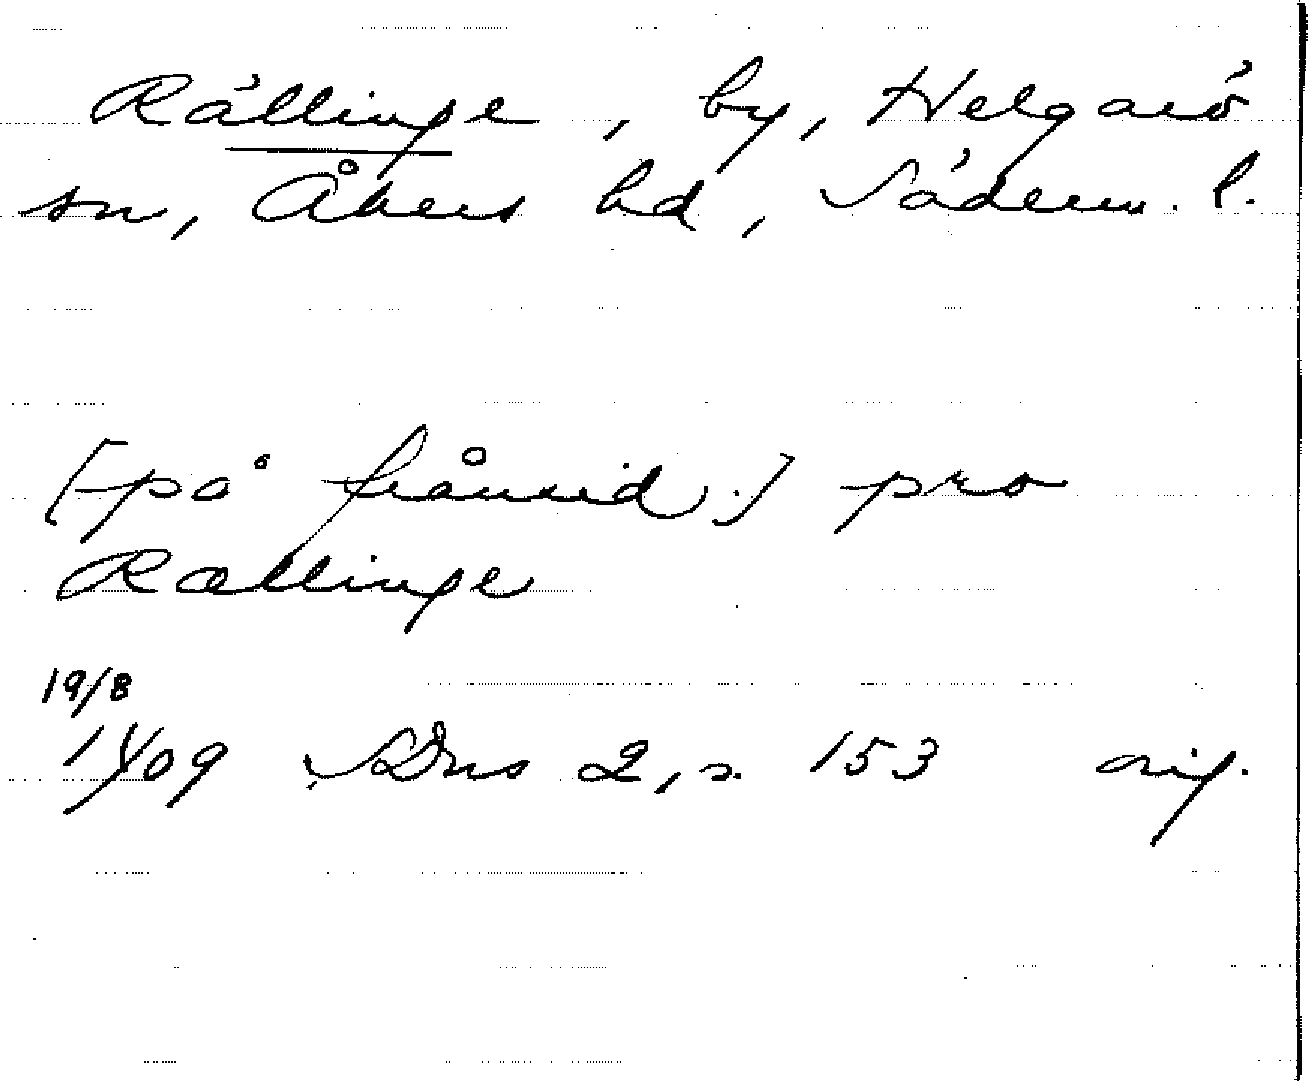 Rällinge, by, Helgarö
sn, Åkers hd, Söderm. l.
[på frånsid.] pro
Rællinge
19/8
1409 SDns 2, s. 153 orig.